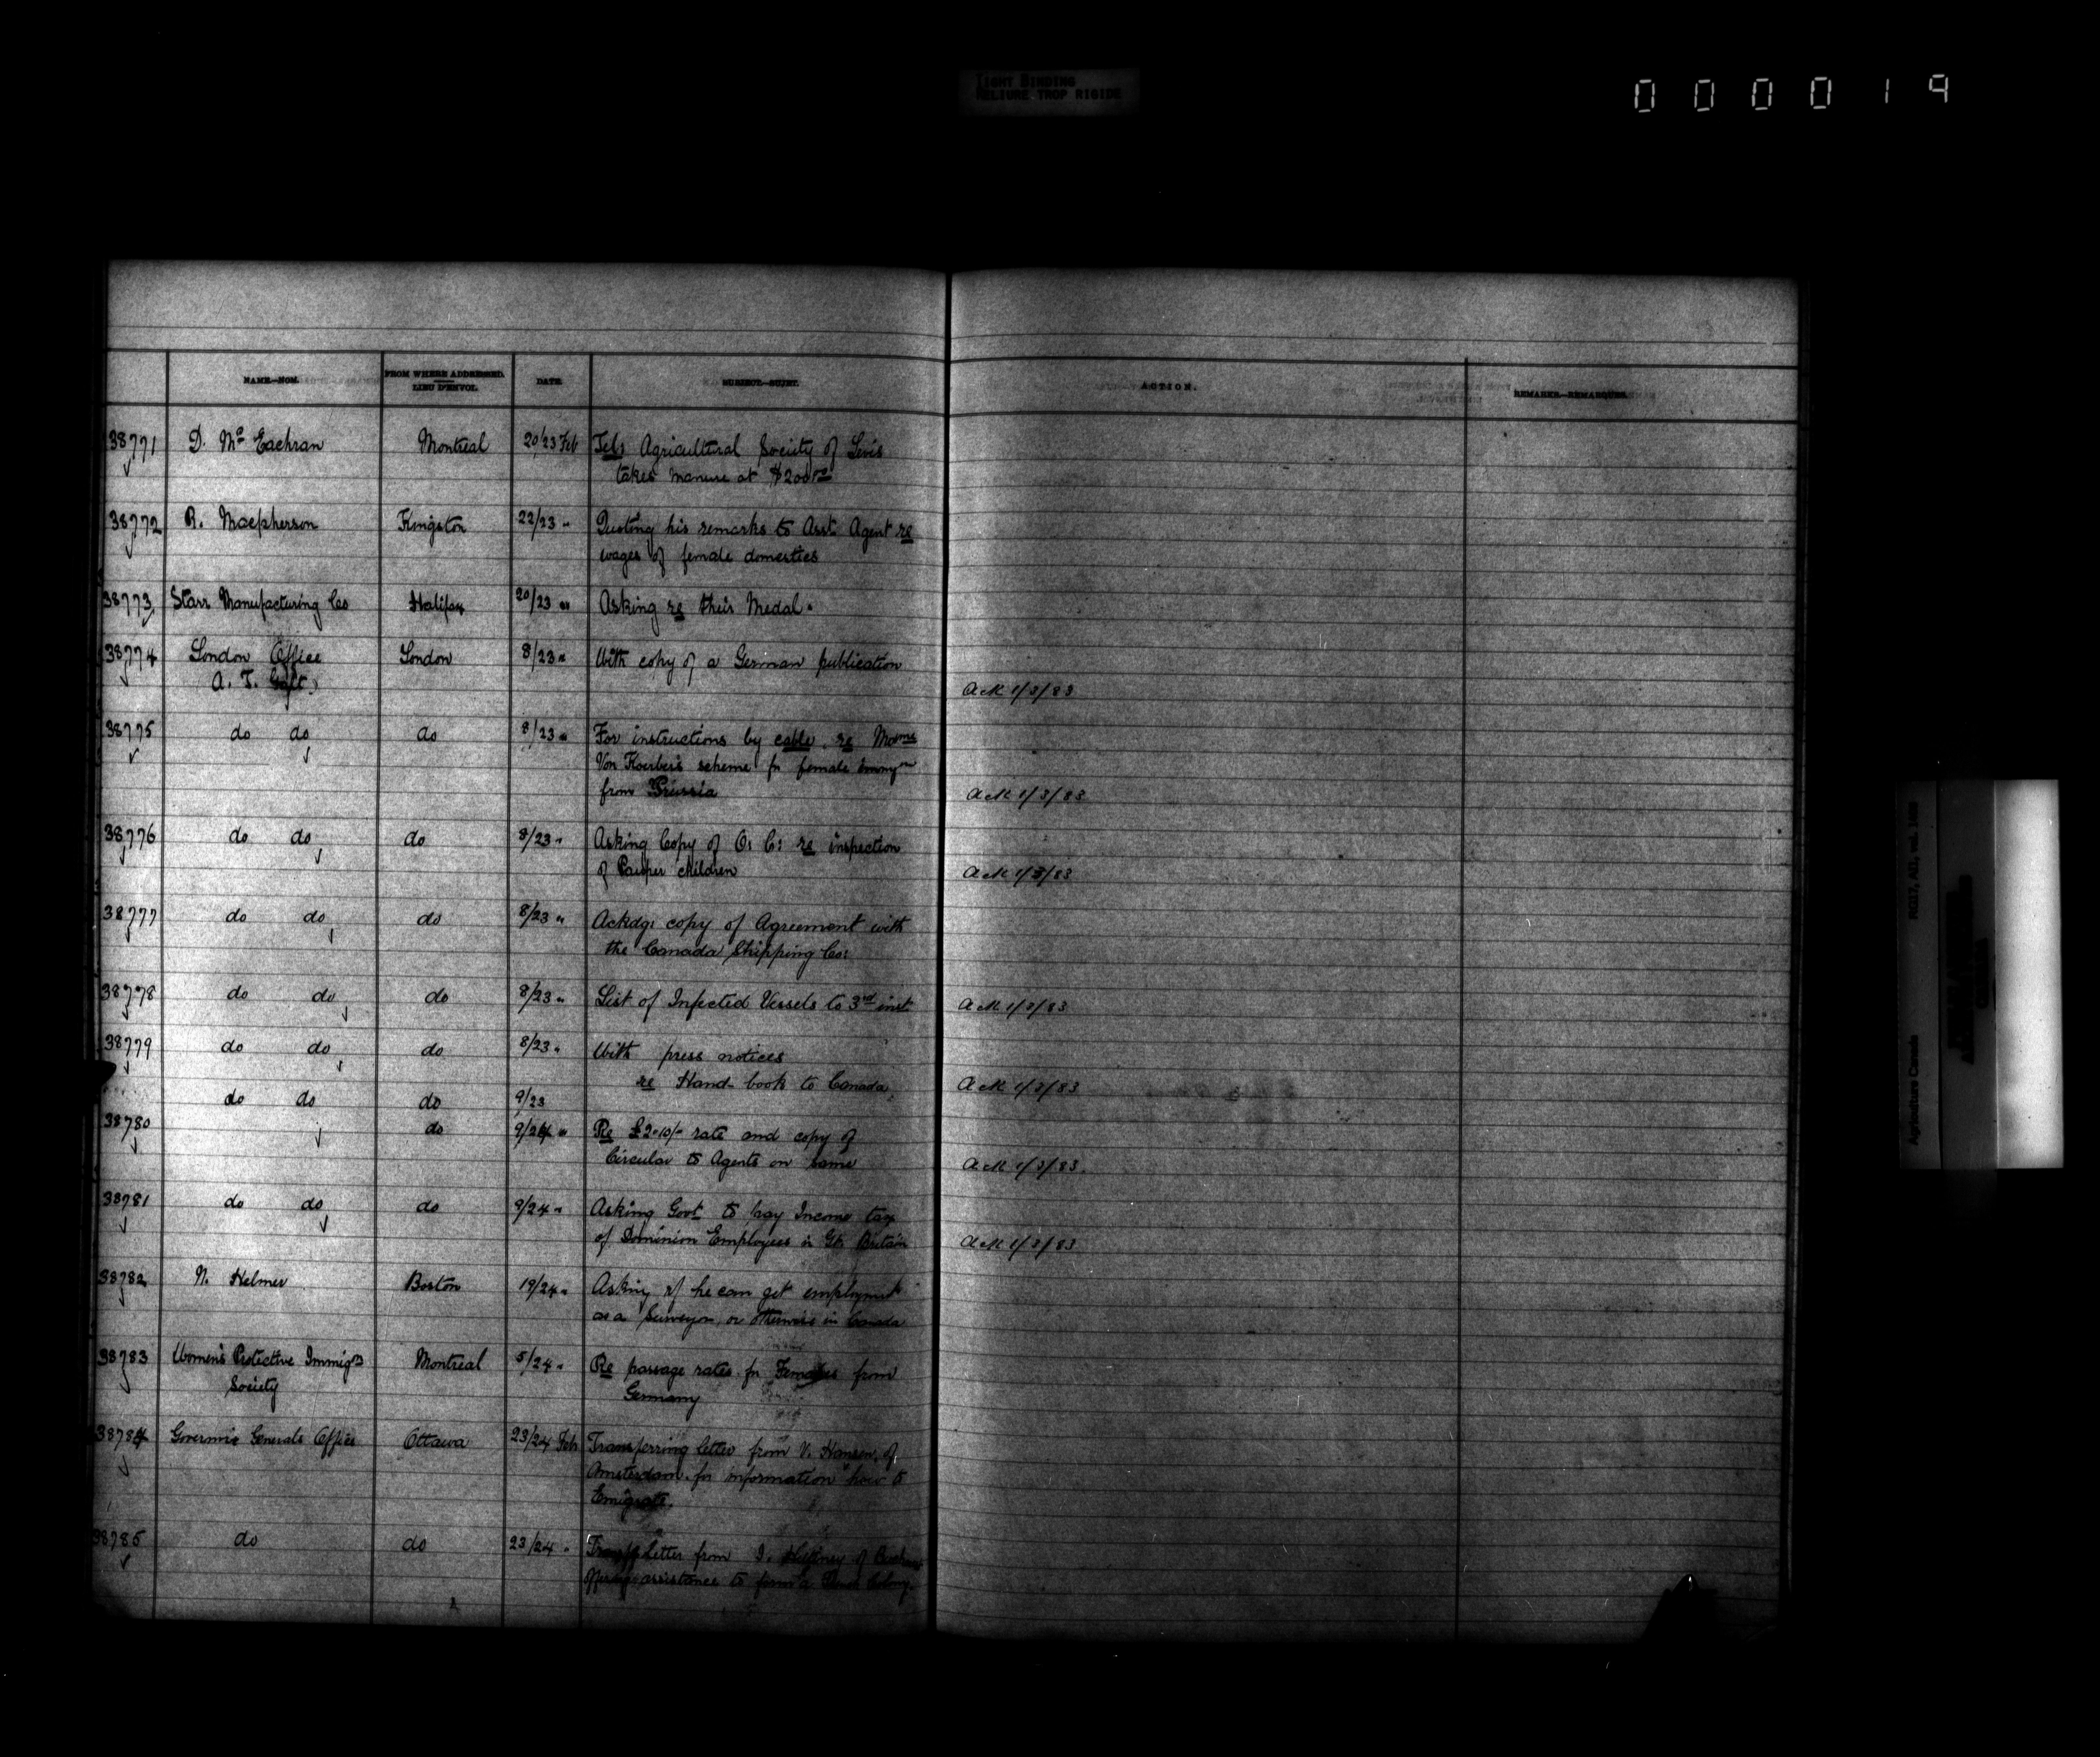 TIGHT BINDING
RELIURE TROP RIGIDE
000019
NAME—NOM. FROM WHERE ADDRESSED. LIEU D'ENVOI. DATE SUBJECT—SUJET. ACTION. REMARKS—REMARQUES.
38771 D. McEachran Montreal 20/23 Feb Tel: Agricultural Society of Levis
takes manure at $200
38772 R. Macpherson Kingston 22/23 " Quoting his remarks to Asst. Agent re
wages of female domestics
38773 Starr Manufacturing Co Halifax 20/23 " Asking re their Medal.
38774 London Office London 8/23 " With copy of a German publication
A. T. Galt. Ack 1/3/83
38775 do do do 8/23 " For instructions by cable re Mdme
Von Koerber's scheme for female immgn
from Prussia Ack 1/3/83
38776 do do do 8/23 " Asking Copy of O: C: re inspection
of Pauper children Ack 1/3/83
38777 do do do 8/23 " Ackdg: copy of Agreement with
the Canada Shipping Co:
38778 do do do 8/23 " List of Infected Vessels to 3rd inst. Ack 1/3/83
38779 do do do 8/23 " With press notices
re Hand-book to Canada Ack 1/3/83
do do do 9/23
38780 do 9/24 " Re £2-10/- rate and copy of
Circular to Agents on same Ack 1/3/83
38781 do do do 9/24 " Asking Govt to pay Income tax
of Dominion Employees in Gt. Britain Ack 1/3/83
38782 N. Helmer Boston 19/24 " Asking if he can get employmt
as a Surveyor, or otherwise in Canada
38783 Women's Protective Immign Montreal 5/24 " Re passage rates for Females from
Society Germany
38784 Governor Generals Office Ottawa 23/24 Feb Transferring letter from V. Hansen, of
Amsterdam for information how to
Emigrate.
38785 do do 23/24 " letter from J. of
assistance to form a Colony.
Agriculture Canada RG17, AII, vol.